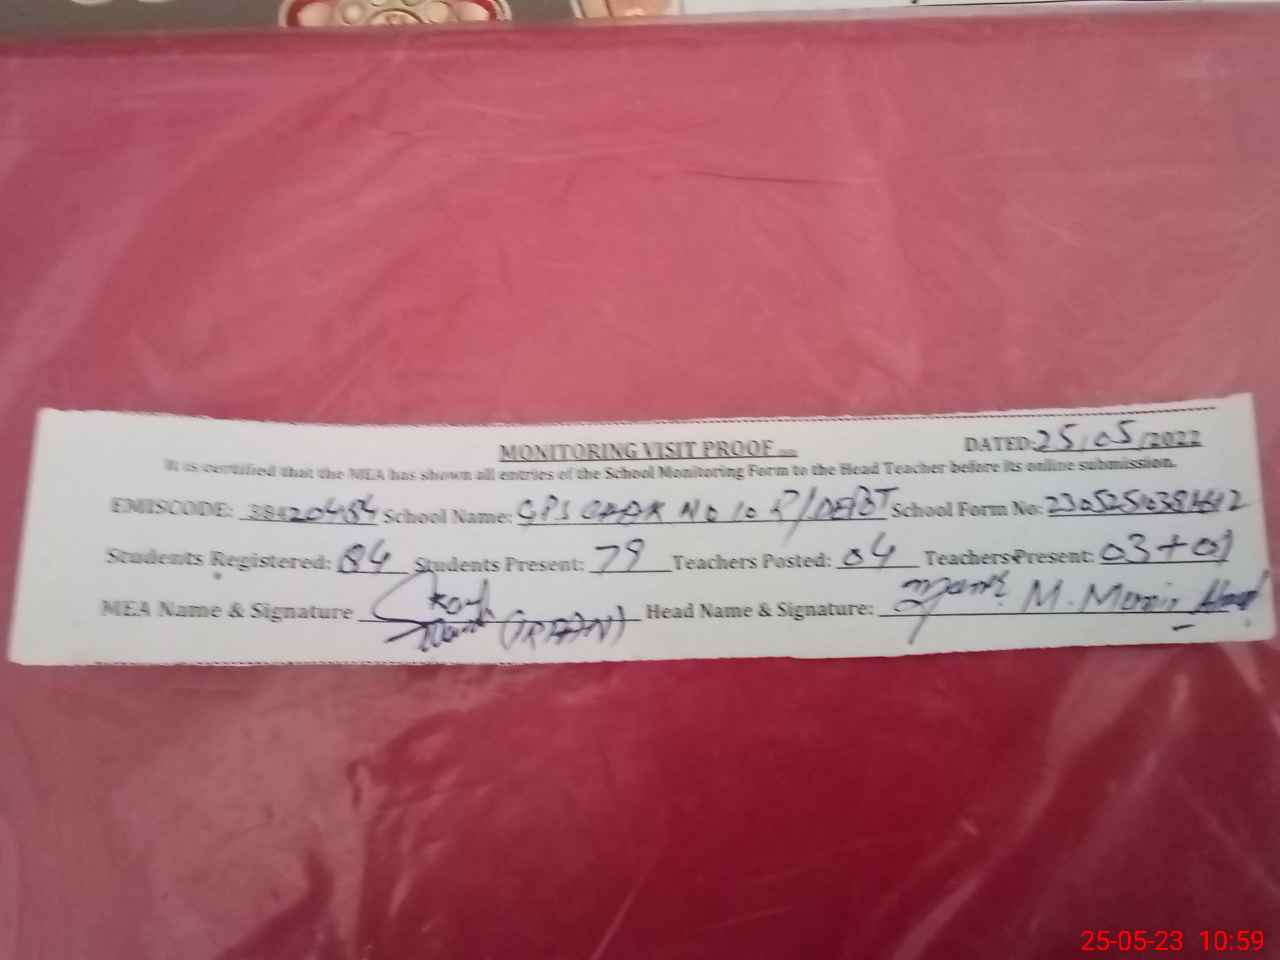 MONITORING VISIT PROOF DATED: 25/05/2022
It is certified that the MEA has shown all entries of the School Monitoring Form to the Head Teacher before its online submission.
EMISCODE: 38420484 School Name: GPS CHAK NO 10 School Form No:
Students Registered: 84 Students Present: 79 Teachers Posted: 04 Teachers Present: 03+01
MEA Name & Signature Head Name & Signature: M.
25-05-23 10:59